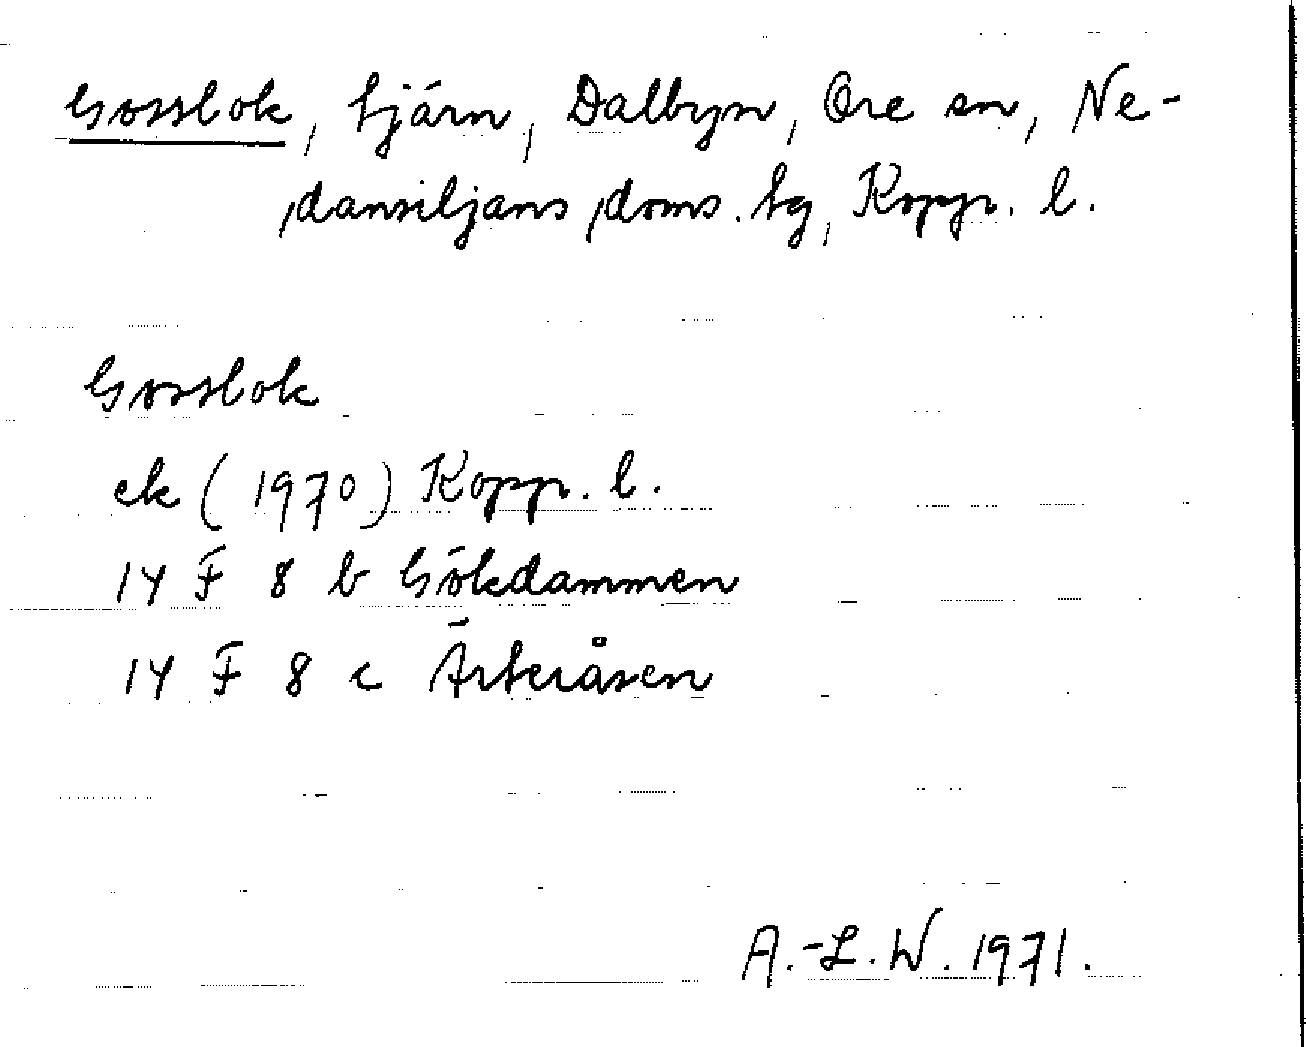 Gossbok, tjärn, Dalbyn, Ore sn, Ne-
dansiljans doms. tg, Kopp. l.
Gossbok
ek (1970) Kopp. l.
14 F 8 b Gökdammen
14 F 8 c Ärteråsen
A.-L. W. 1971.